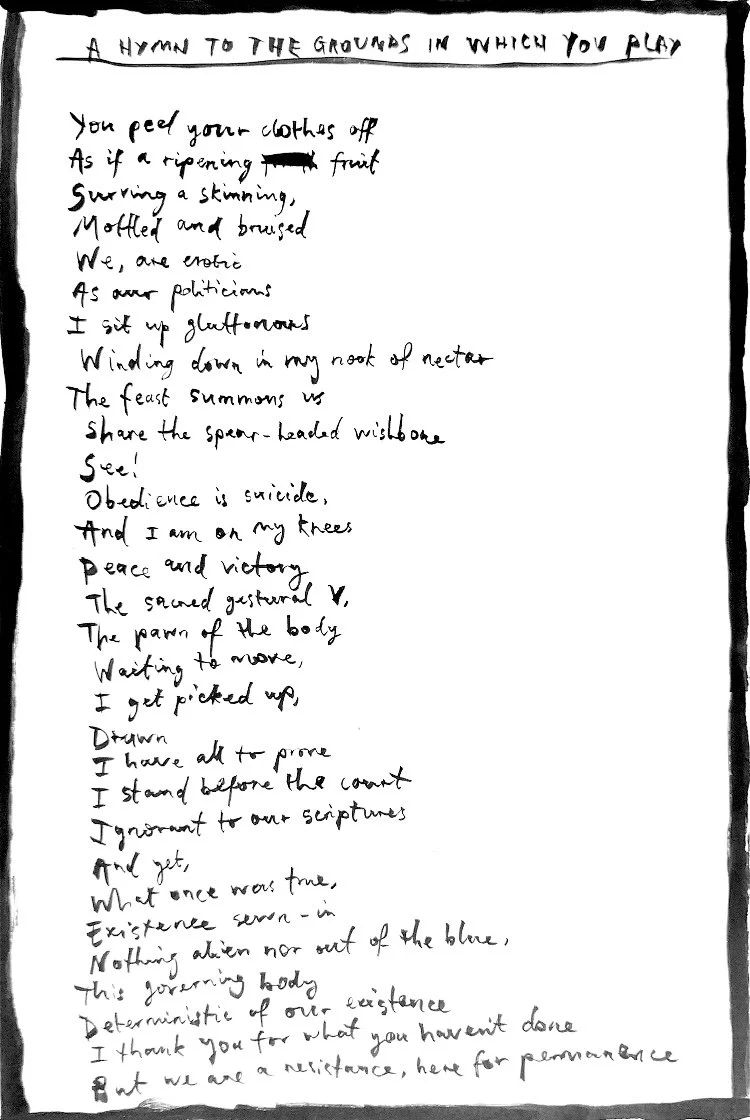 A HYMN TO THE GROUNDS IN WHICH YOU PLAY
You peel your clothes off
As if a ripening fruit
Surving a skinning,
Mottled and bruised
We, are erotic
As our politicians
I sit up gluttonous
Winding down in my nook of nectar
The feast summons us
Share the spear-headed wishbone
See!
Obedience is suicide,
And I am on my knees
Peace and victory
The sacred gestural V,
The pawn of the body
Waiting to move,
I get picked up,
Drawn
I have all to prove
I stand before the court
Ignorant to our scriptures
And yet,
What once was true,
Existence sewn-in
Nothing alien nor out of the blue,
This governing body
Deterministic of our existence
I thank you for what you haven't done
But we are a resistance, here for permanence